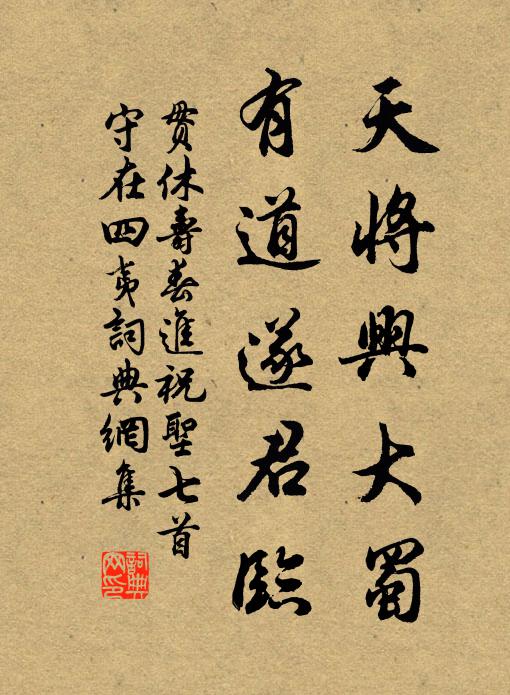 天將興大蜀
有道遂君臨
貫休壽春進祝聖七首
守在四夷詞典網集
詞典網印